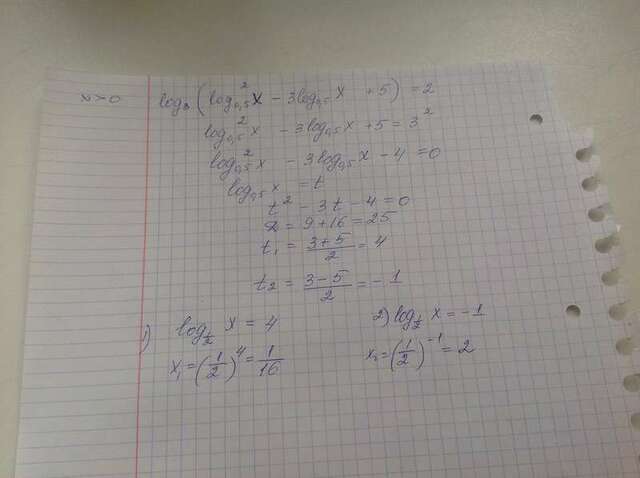 x>0 log₃(log²₀,₅x − 3log₀,₅x + 5) = 2
log²₀,₅x − 3log₀,₅x + 5 = 3²
log²₀,₅x − 3log₀,₅x − 4 = 0
log₀,₅x = t
t² − 3t − 4 = 0
D = 9 + 16 = 25
t₁ = (3+5)/2 = 4
t₂ = (3−5)/2 = −1
1) log_{1/2} x = 4 2) log_{1/2} x = −1
x₁ = (1/2)⁴ = 1/16 x₂ = (1/2)⁻¹ = 2